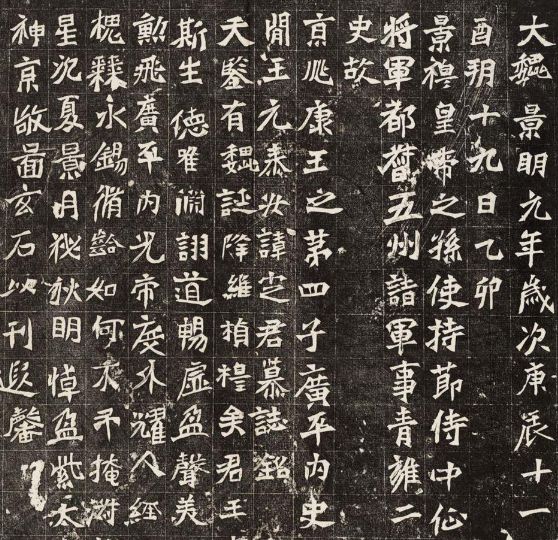 大魏景明元年歲次庚辰十一
酉朔十九日乙卯
景穆皇帝之孫使持節侍中征
將軍都督五州諸軍事青雍二
史故
京兆康王之第四子廣平內史
閒王元泰安諱定君墓誌銘
天鑒有魏誕降維楨桓矣君王
斯生德唯淵詡道暢虛盈聲美
勳飛廣平內光帝度外耀人經
永錫脩齡如何不弔掩
星沉夏景月秘秋明悼盈紫太
神京敬啚玄石以刊遐馨